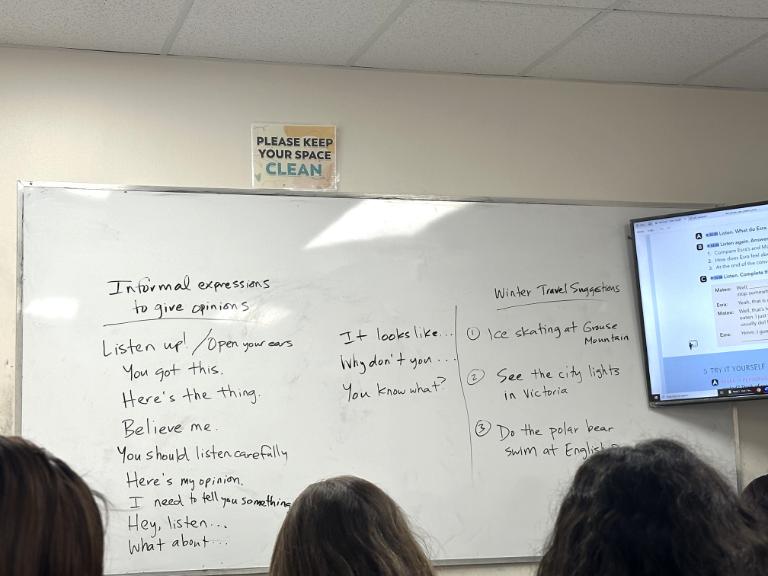 PLEASE KEEP
YOUR SPACE
CLEAN
Informal expressions
to give opinions
Listen up! / Open your ears
You got this.
Here's the thing.
Believe me.
You should listen carefully
Here's my opinion.
I need to tell you something
Hey, listen...
What about...
It looks like...
Why don't you ...
You know what?
Winter Travel Suggestions
① Ice skating at Grouse
Mountain
② See the city lights
in Victoria
③ Do the polar bear
swim at English
A Listen. What do Esra
B Listen again. Answer
1. Compare Esra's and
2. How does Esra feel
3. At the end of the
C Listen. Complete
Well,
Esra: Yeah, that is
Well, that's
usually
Esra:
5 TRY IT YOURSELF
A